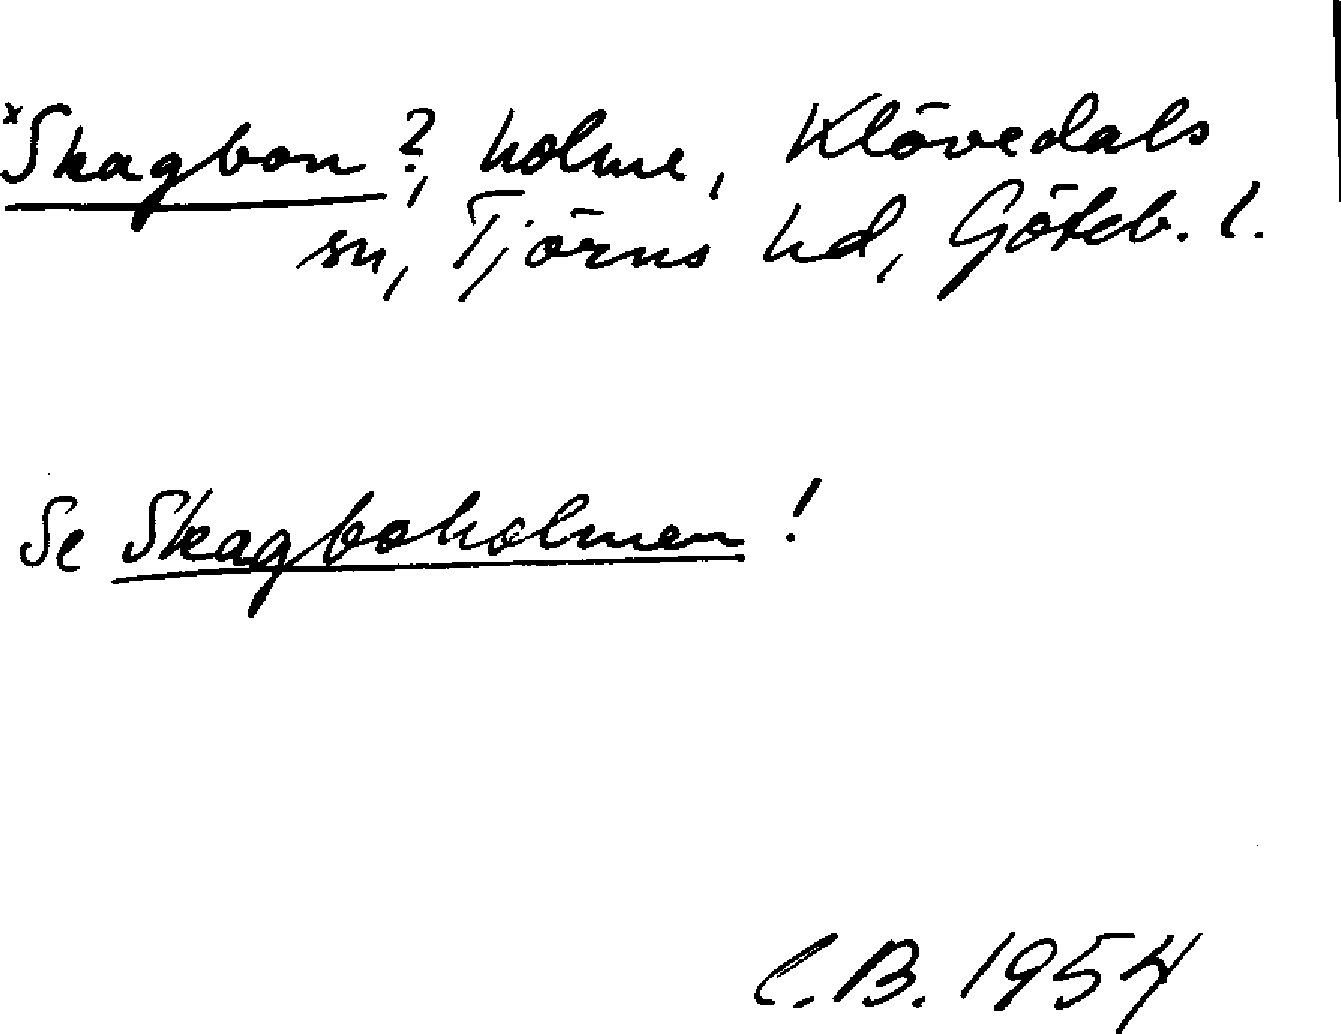 *Skagbon?, holme, Klövedals
sn, Tjörns hd, Göteb. l.
Se Skagboholmen!
C.B. 1954